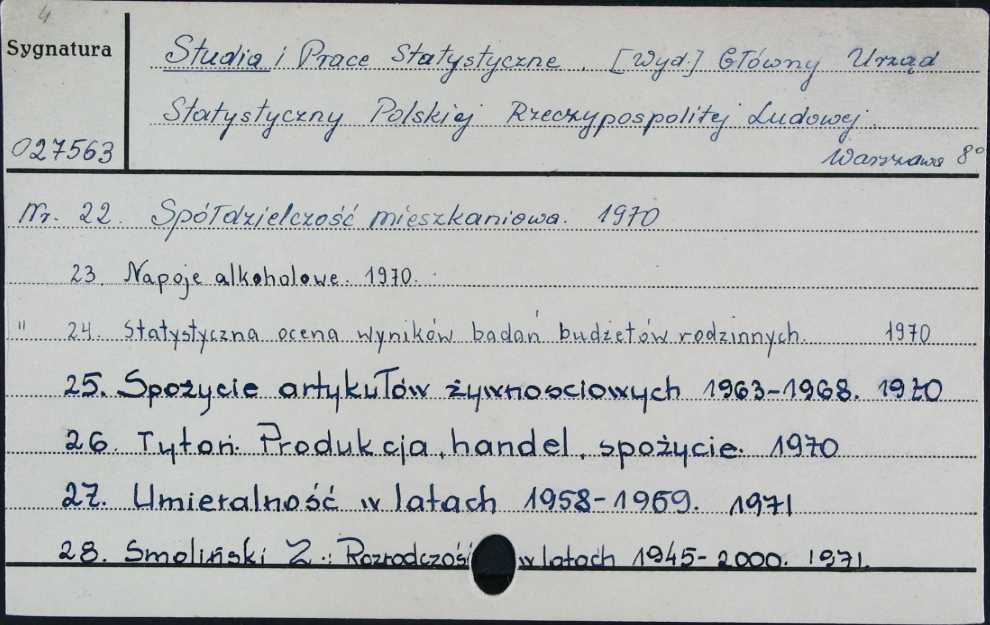 4
Sygnatura
Studia i Prace Statystyczne. [Wyd.] Główny Urząd
Statystyczny Polskiej Rzeczypospolitej Ludowej.
027563
Warszawa 8°
Nr. 22. Spółdzielczość mieszkaniowa. 1970
23. Napoje alkoholowe. 1970.
" 24. Statystyczna ocena wyników badań budżetów rodzinnych. 1970
25. Spożycie artykułów żywnosciowych 1963-1968. 1970
26. Tytoń. Produkcja, handel, spożycie. 1970
27. Umieralność w latach 1958-1969. 1971
28. Smoliński Z.: Rozrodczość w latach 1945-2000. 1971.